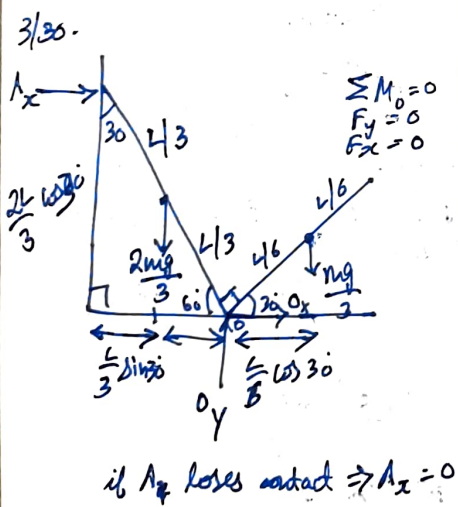 3/30.
Ax
30
L/3
ΣMo=0
Fy=0
Fx=0
2L/3 cos30
L/3
L/6
L/6
2mg/3
mg/3
60
30
Ox
o
L/3 sin30
L/6 cos30
Oy
if A loses contact ⇒ Ax = 0